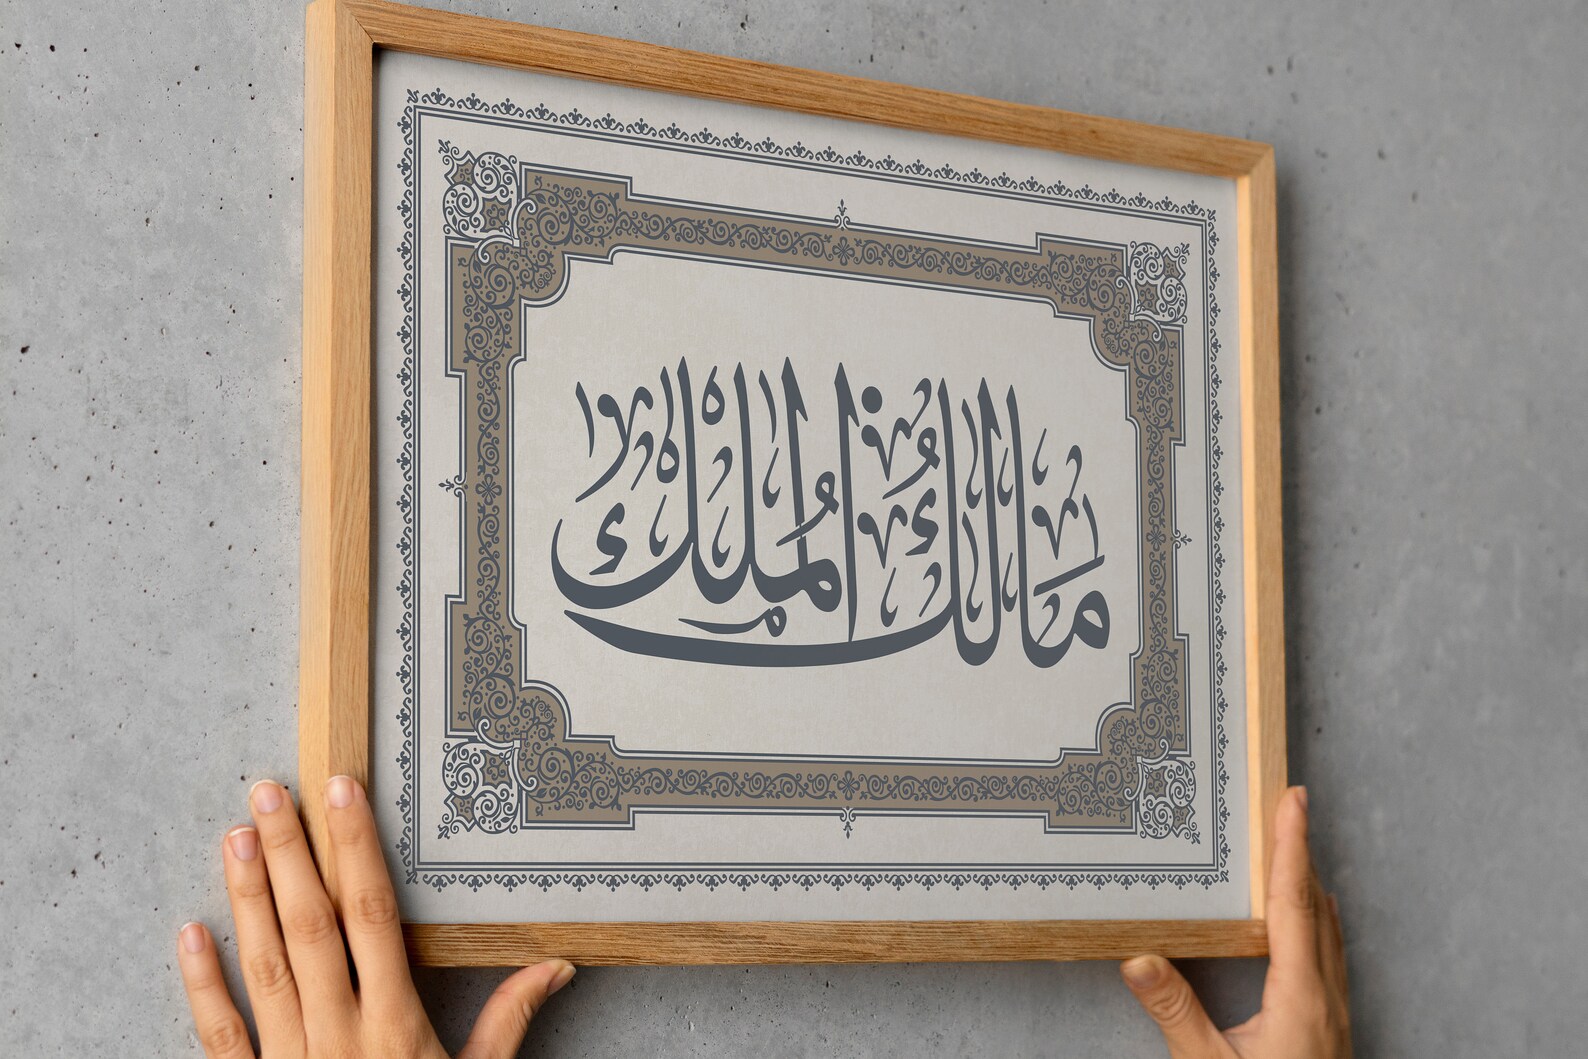 مَالِكُ الْمُلْك